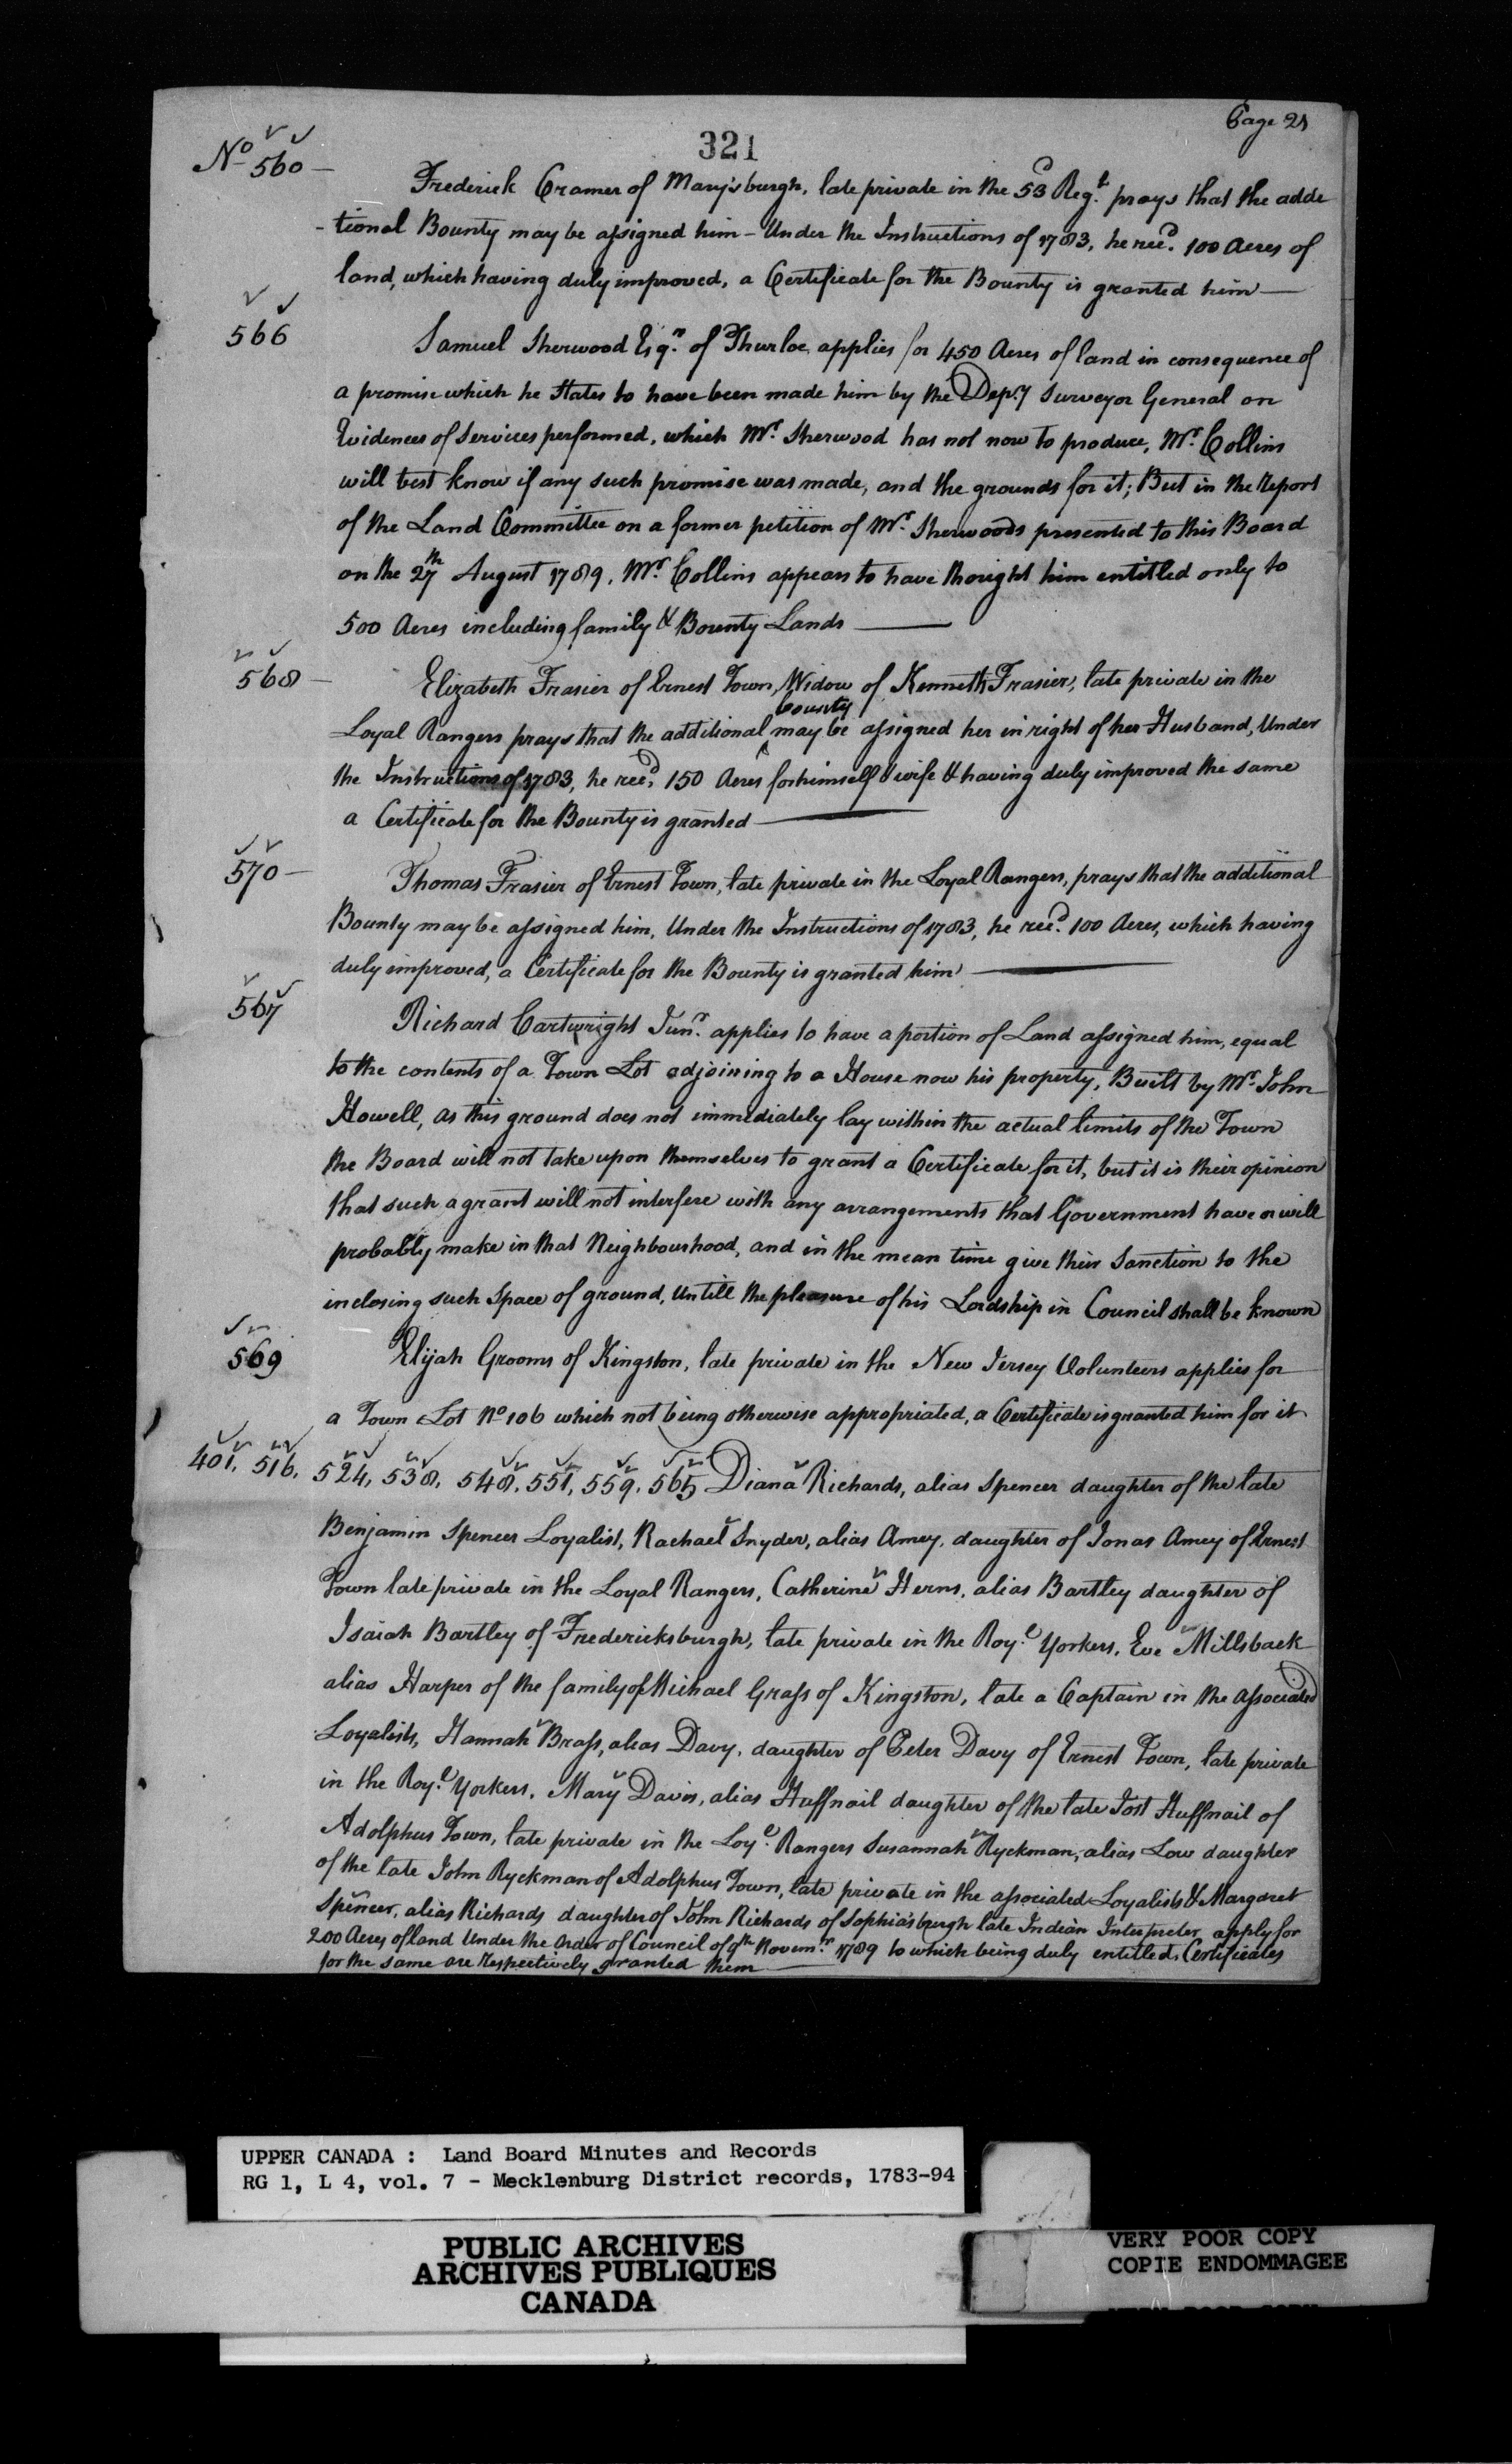 Page 21
321
No 560 —
Frederick Cramer of Marysburgh, late private in the 53d Regt. prays that the addi
-tional Bounty may be assigned him – Under the Instructions of 1783, he recd. 100 Acres of
land, which having duly improved, a Certificate for the Bounty is granted him —
566
Samuel Sherwood Esqr. of Thurloe, applies for 450 Acres of land in consequence of
a promise which he States to have been made him by the Depy. Surveyor General on
Evidences of Services performed, which Mr. Sherwood has not now to produce, Mr. Collins
will best know if any such promise was made, and the grounds for it; But in the Report
of the Land Committee on a former petition of Mr. Sherwoods presented to this Board
on the 27th August 1789, Mr. Collins appears to have thought him entitled only to
500 Acres including family & Bounty Lands —
568 —
Elizabeth Frasier of Ernest Town, Widow of Kenneth Frasier, late private in the
Loyal Rangers prays that the additional bounty may be assigned her in right of her Husband, Under
the Instructions of 1783, he recd. 150 Acres for himself & wife & having duly improved the same
a Certificate for the Bounty is granted —
570 —
Thomas Frasier of Ernest Town, late private in the Loyal Rangers, prays that the additional
Bounty may be assigned him, Under the Instructions of 1783, he recd. 100 Acres, which having
duly improved, a Certificate for the Bounty is granted him —
567
Richard Cartwright Junr. applies to have a portion of Land assigned him, equal
to the contents of a Town Lot adjoining to a House now his property, Built by Mr. John
Howell, as this ground does not immediately lay within the actual limits of the Town
the Board will not take upon themselves to grant a Certificate for it, but it is their opinion
that such a grant will not interfere with any arrangements that Government have or will
probably make in that Neighbourhood, and in the mean time give their Sanction to the
inclosing such Space of ground, Untill the pleasure of his Lordship in Council shall be known
569
Elijah Grooms of Kingston, late private in the New Jersey Volunteers applies for
a Town Lot No 106 which not being otherwise appropriated, a Certificate is granted him for it
401, 516, 524, 538, 548, 551, 559, 565 Diana Richards, alias Spencer daughter of the late
Benjamin Spencer Loyalist, Rachael Snyder, alias Amey, daughter of Jonas Amey of Ernest
Town late private in the Loyal Rangers, Catherine Herns, alias Bartley daughter of
Isaiah Bartley of Fredericksburgh, late private in the Royl. Yorkers, Eve Millsback
alias Harper of the family of Michael Grass of Kingston, late a Captain in the associated
Loyalists, Hannah Brass, alias Davy, daughter of Peter Davy of Ernest Town, late private
in the Royl. Yorkers, Mary Davis, alias Huffnail daughter of the late Jost Huffnail of
Adolphus Town, late private in the Loyl. Rangers Susannah Ryckman, alias Low daughter
of the late John Ryckman of Adolphus Town, late private in the associated Loyalists & Margaret
Spencer, alias Richards daughter of John Richards of Sophiasburgh late Indian Interpreter, apply for
200 Acres of land Under the Order of Council of 9th Novemr. 1789 to which being duly entitled, Certificates
for the same are Respectively granted them —
UPPER CANADA : Land Board Minutes and Records
RG 1, L 4, vol. 7 - Mecklenburg District records, 1783-94
PUBLIC ARCHIVES
ARCHIVES PUBLIQUES
CANADA
VERY POOR COPY
COPIE ENDOMMAGEE